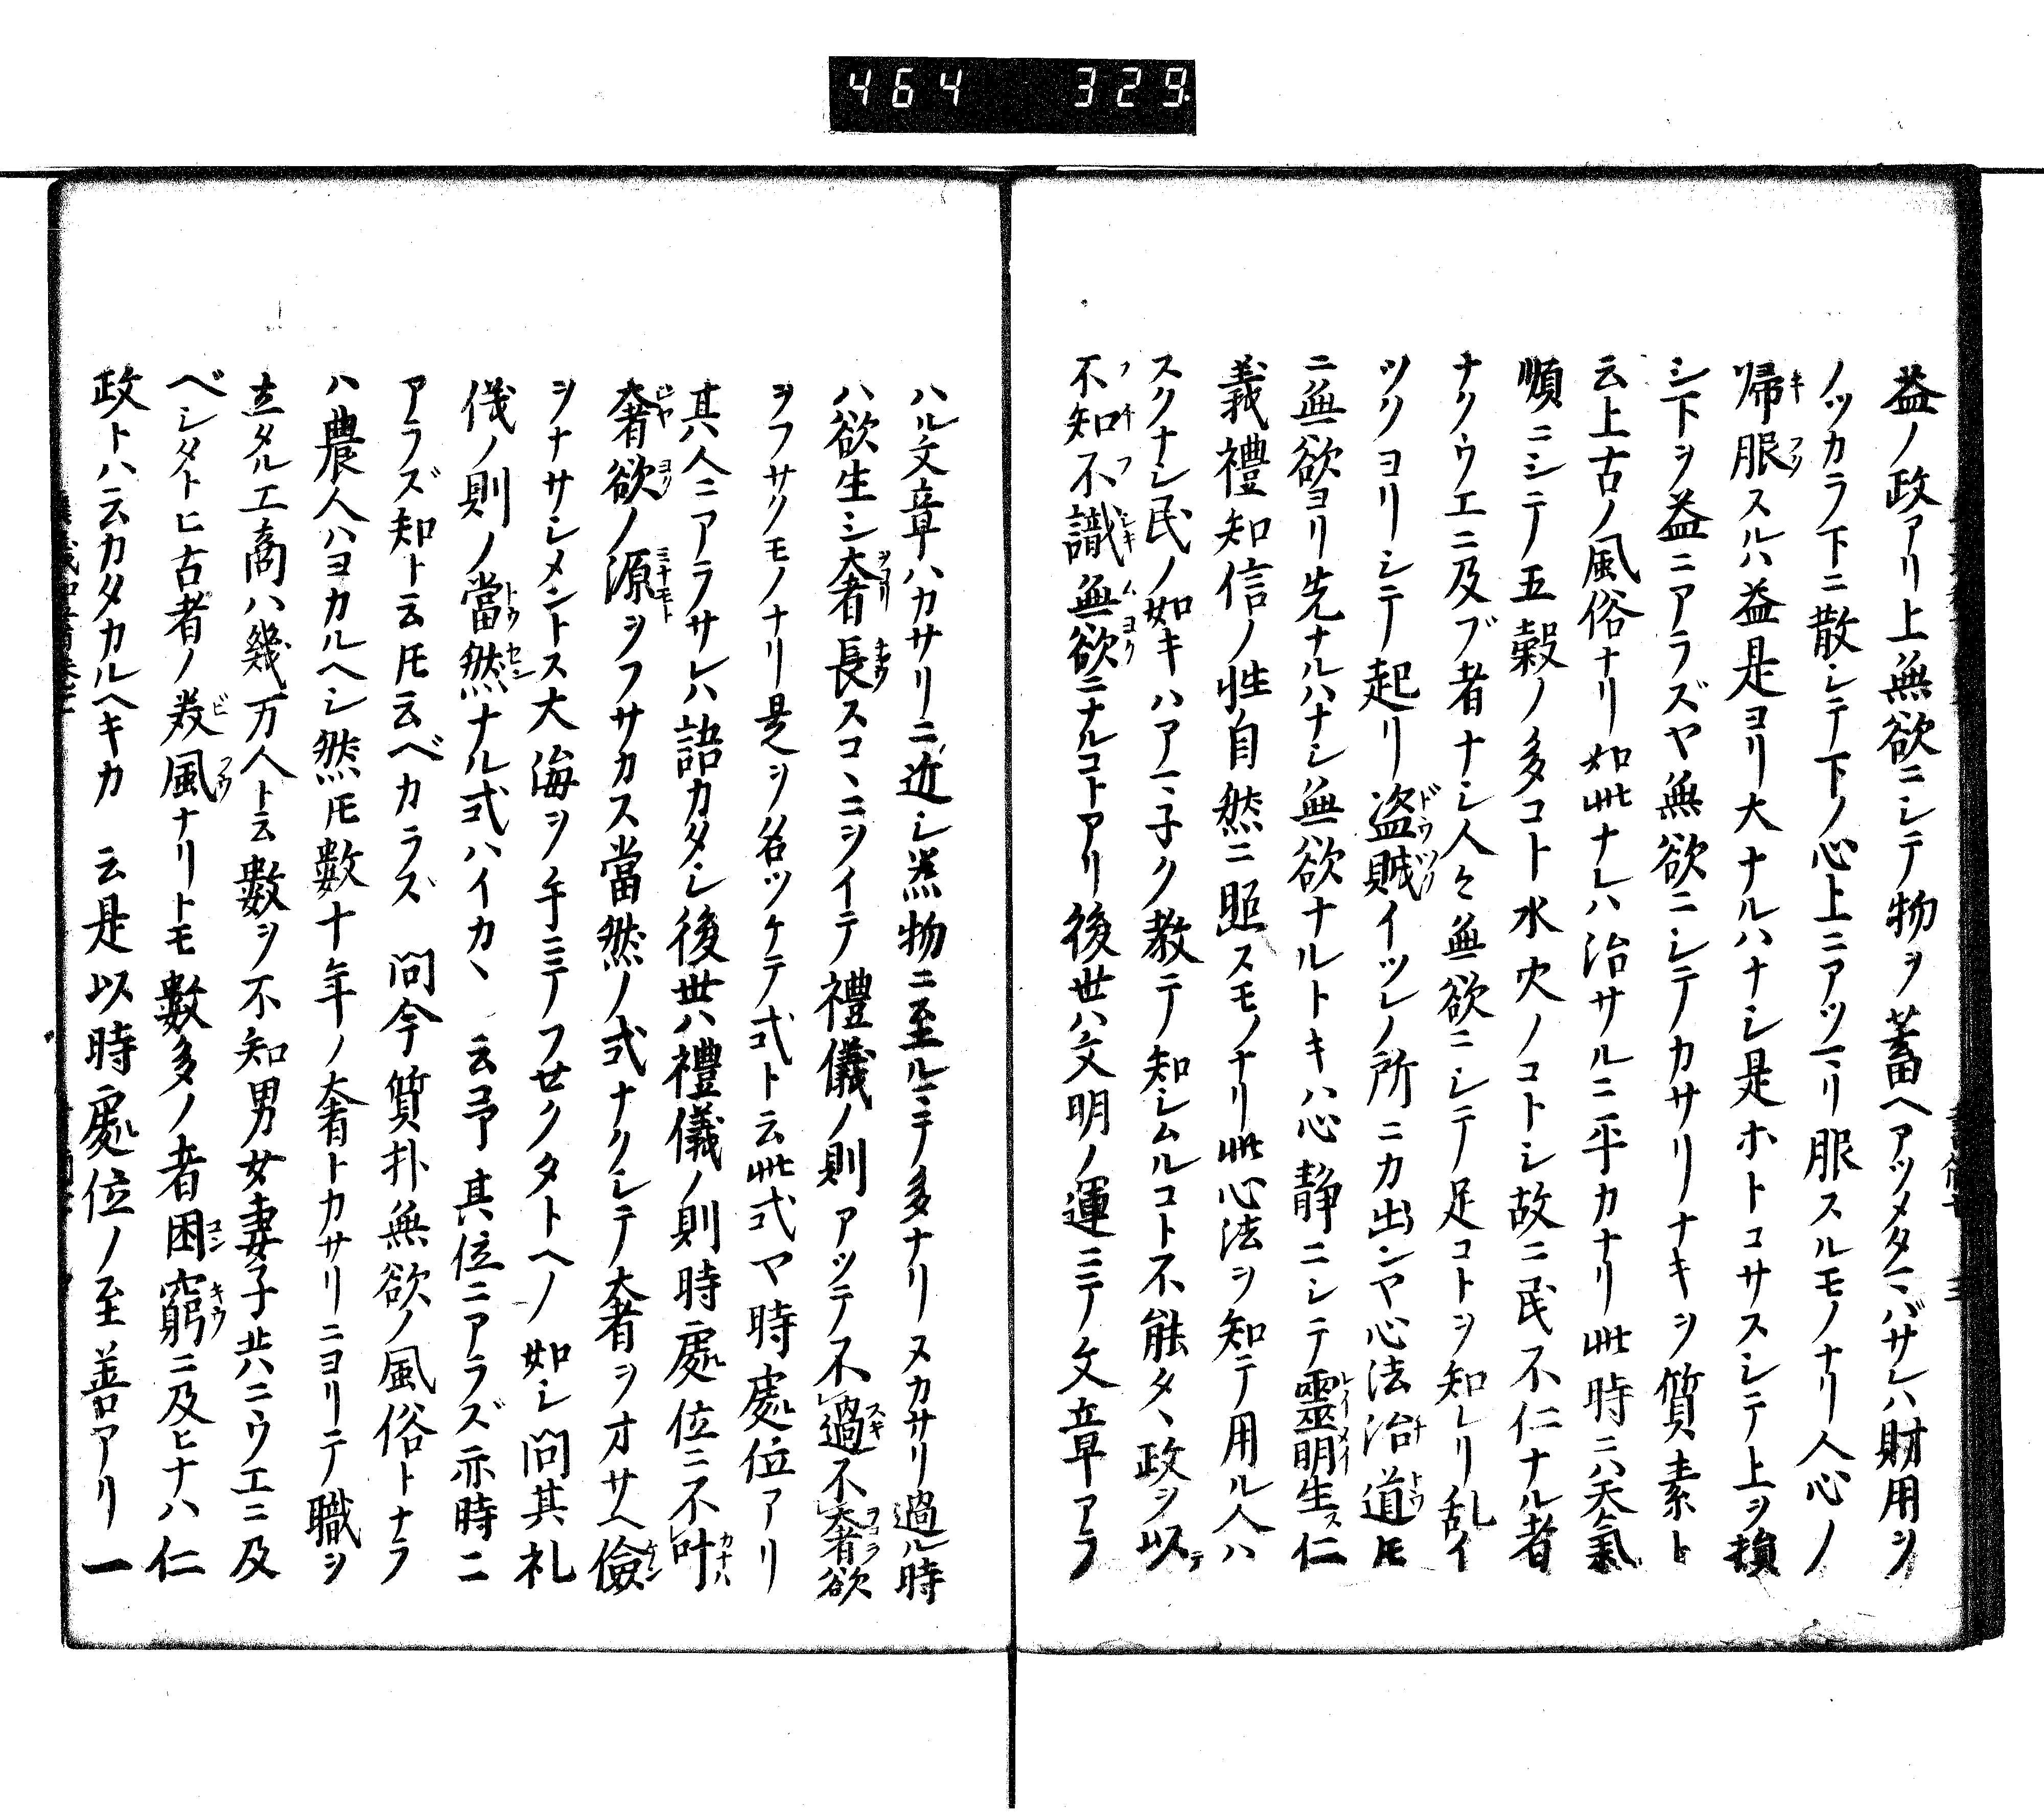 464 329
益ノ政アリ上無欲ニシテ物ヲ蓄ヘアツメタマバサレハ財用ヲ
ノツカラ下ニ散シテ下ノ心上ニアツマリ服スルモノナリ人心ノ
帰服スルハ益是ヨリ大ナルハナシ是ホトコサスシテ上ヲ損
シ下ヲ益ニアラズヤ無欲ニシテカサリナキヲ質素ト
云上古ノ風俗ナリ如此ナレハ治サルニ平カナリ此時ニハ天氣
順ニシテ五穀ノ多コト水火ノコトシ故ニ民不仁ナル者
ナクウエニ及ブ者ナシ人々無欲ニシテ足コトヲ知レリ乱イ
ツクヨリシテ起リ盗賊イツレノ所ニカ出ンヤ心法治道トモ
ニ無欲ヨリ先ナルハナシ無欲ナルトキハ心静ニシテ靈明生ス仁
義禮知信ノ性自然ニ照スモノナリ此心法ヲ知テ用ル人ハ
スクナシ民ノ如キハアマ子ク教テ知シムルコト不能タヽ政ヲ以テ
不知不識無欲ニナルコトアリ後世ハ文明ノ運ニテ文章アラ
ハル文章ハカサリニ近シ器物ニ至ルマテ多ナリヌカサリ過ル時
ハ欲生シ奢長スコヽニヲイテ禮儀ノ則アツテ不過不奢欲
ヲフサクモノナリ是ヲ名ツケテ式ト云此式ヤ時處位アリ
其人ニアラサレハ語カタシ後世ハ禮儀ノ則時處位ニ不叶
奢欲ノ源ヲフサカス當然ノ式ナクシテ奢ヲオサヘ儉
ヲナサシメントス大海ヲ手ニテフセクタトヘノ如シ問其礼
儀ノ則ノ當然ナル式ハイカヽ 云予其位ニアラズ亦時ニ
アラズ知ト云トモ云ベカラズ 問今質朴無欲ノ風俗トナラ
ハ農人ハヨカルヘシ然トモ數十年ノ奢トカサリニヨリテ職ヲ
立タル工商ハ幾万人ト云數ヲ不知男女妻子共ニウエニ及
ベシタトヒ古者ノ美風ナリトモ數多ノ者困窮ニ及ヒナハ仁
政トハ云カタカルヘキカ 云是以時處位ノ至善アリ一